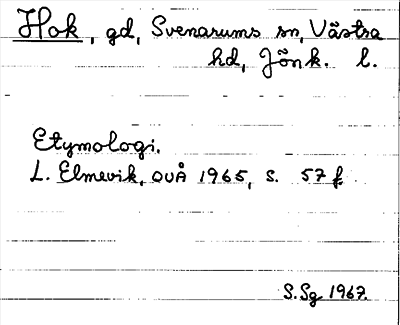 Hok, gd, Svenarums sn, Västra
hd, Jönk. l.
Etymologi.
L. Elmevik, OUÅ 1965, s. 57 f.
S.Sg 1967.